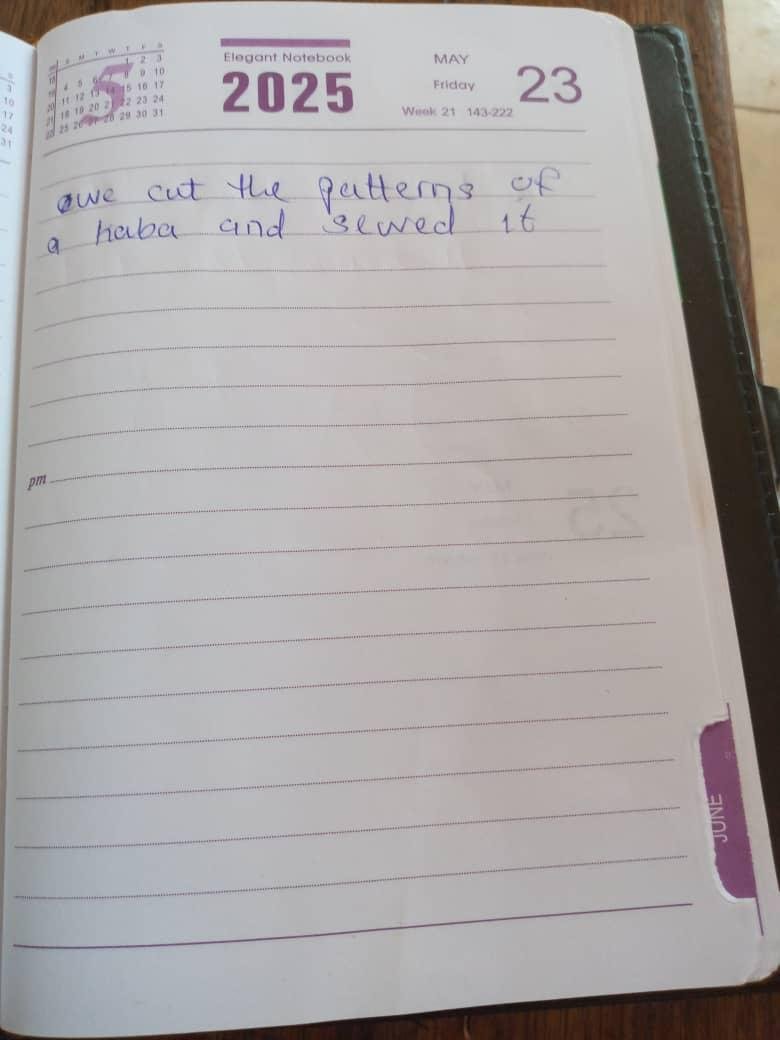 S M T W T F S
1 2 3
4 5 6 9 10
11 12 13 14 15 16 17
18 19 20 21 22 23 24
25 26 27 28 29 30 31
5
Elegant Notebook
2025
MAY
Friday
23
Week 21 143-222
we cut the patterns of
a haba and sewed it
pm
JUNE
3
10
17
24
31